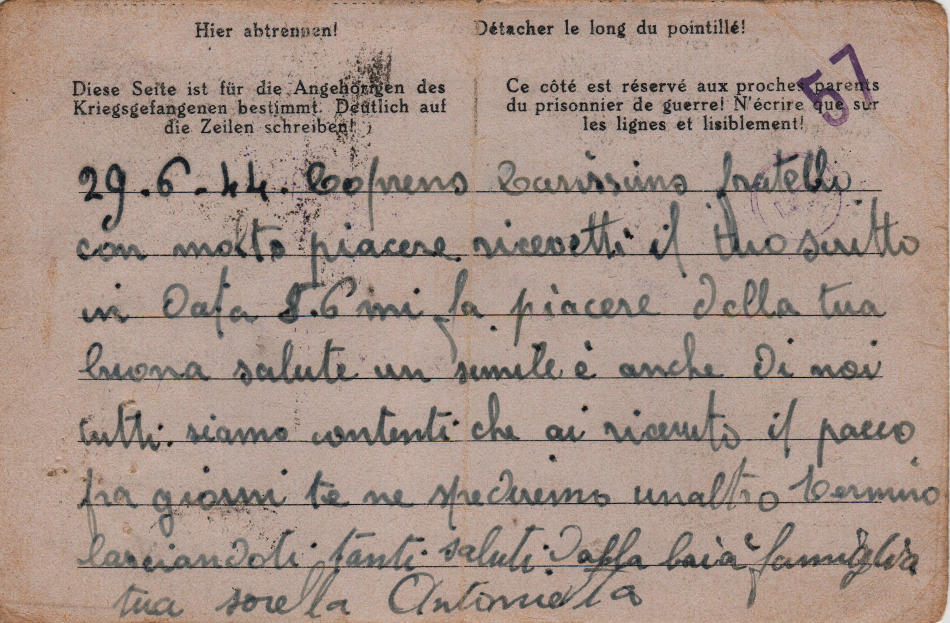 Hier abtrennen!
Détacher le long du pointillé!
Diese Seite ist für die Angehörigen des
Kriegsgefangenen bestimmt. Deutlich auf
die Zeilen schreiben!
Ce côté est réservé aux proches parents
du prisonnier de guerre! N'écrire que sur
les lignes et lisiblement!
57
29.6.44. Cofreno Carissimo fratello
con molto piacere ricevetti il tuo scritto
in data 5.6 mi fa piacere della tua
buona salute un simile è anche di noi
tutti siamo contenti che ai riceuto il pacco
fra giorni te ne spediremo unaltro Termino
lasciandoti tanti saluti dalla famiglia
tua sorella Antonietta